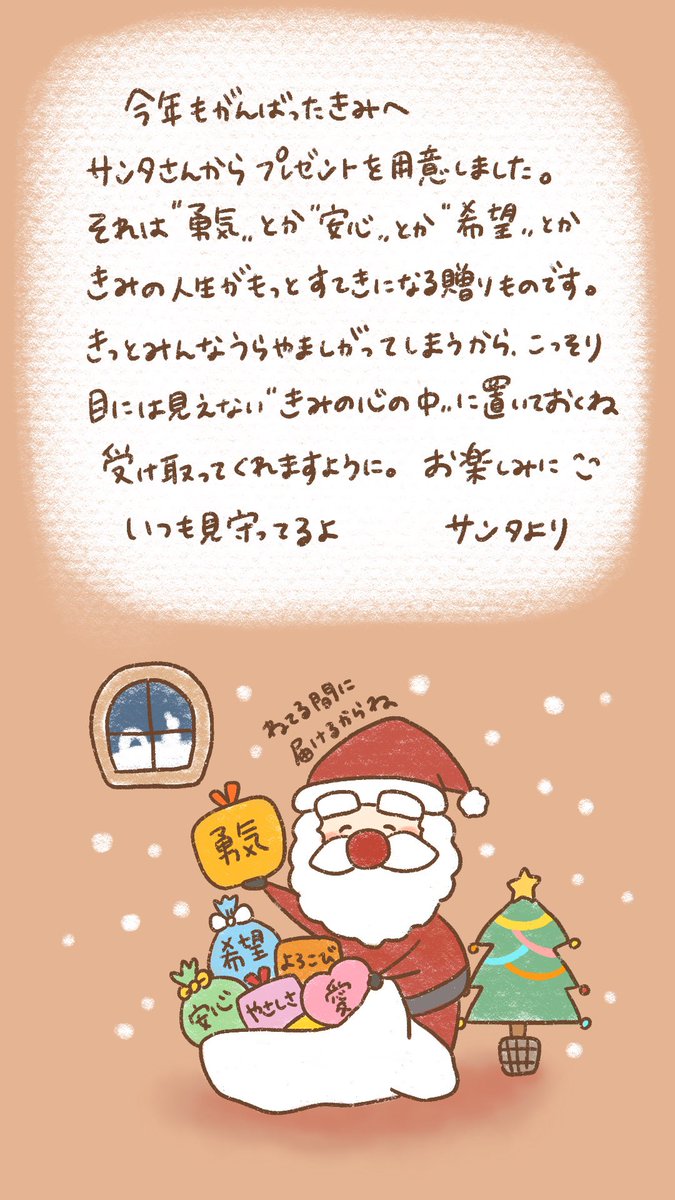 今年もがんばったきみへ
サンタさんからプレゼントを用意しました。
それは"勇気"とか"安心"とか"希望"とか
きみの人生がもっとすてきになる贈りものです。
きっとみんなうらやましがってしまうから、こっそり
目には見えない"きみの心の中"に置いておくね
受け取ってくれますように。 お楽しみに
いつも見守ってるよ サンタより
ねてる間に
届けるからね
勇気
希望
よろこび
安心
やさしさ
愛